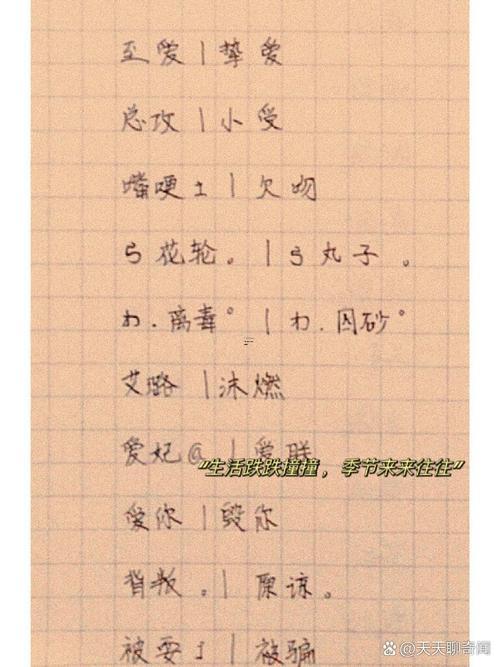 至爱 | 挚爱
总攻 | 小受
嘴哽± | 欠吻
ら花轮。 | ら丸子。
わ.离毒° | わ.囚砂°
艾璐 | 沐燃
爱妃@ | 爱朕
“生活跌跌撞撞，季节来来往往”
爱你 | 毁你
背叛。 | 原谅。
被耍± | 被骗
@天天聊奇闻